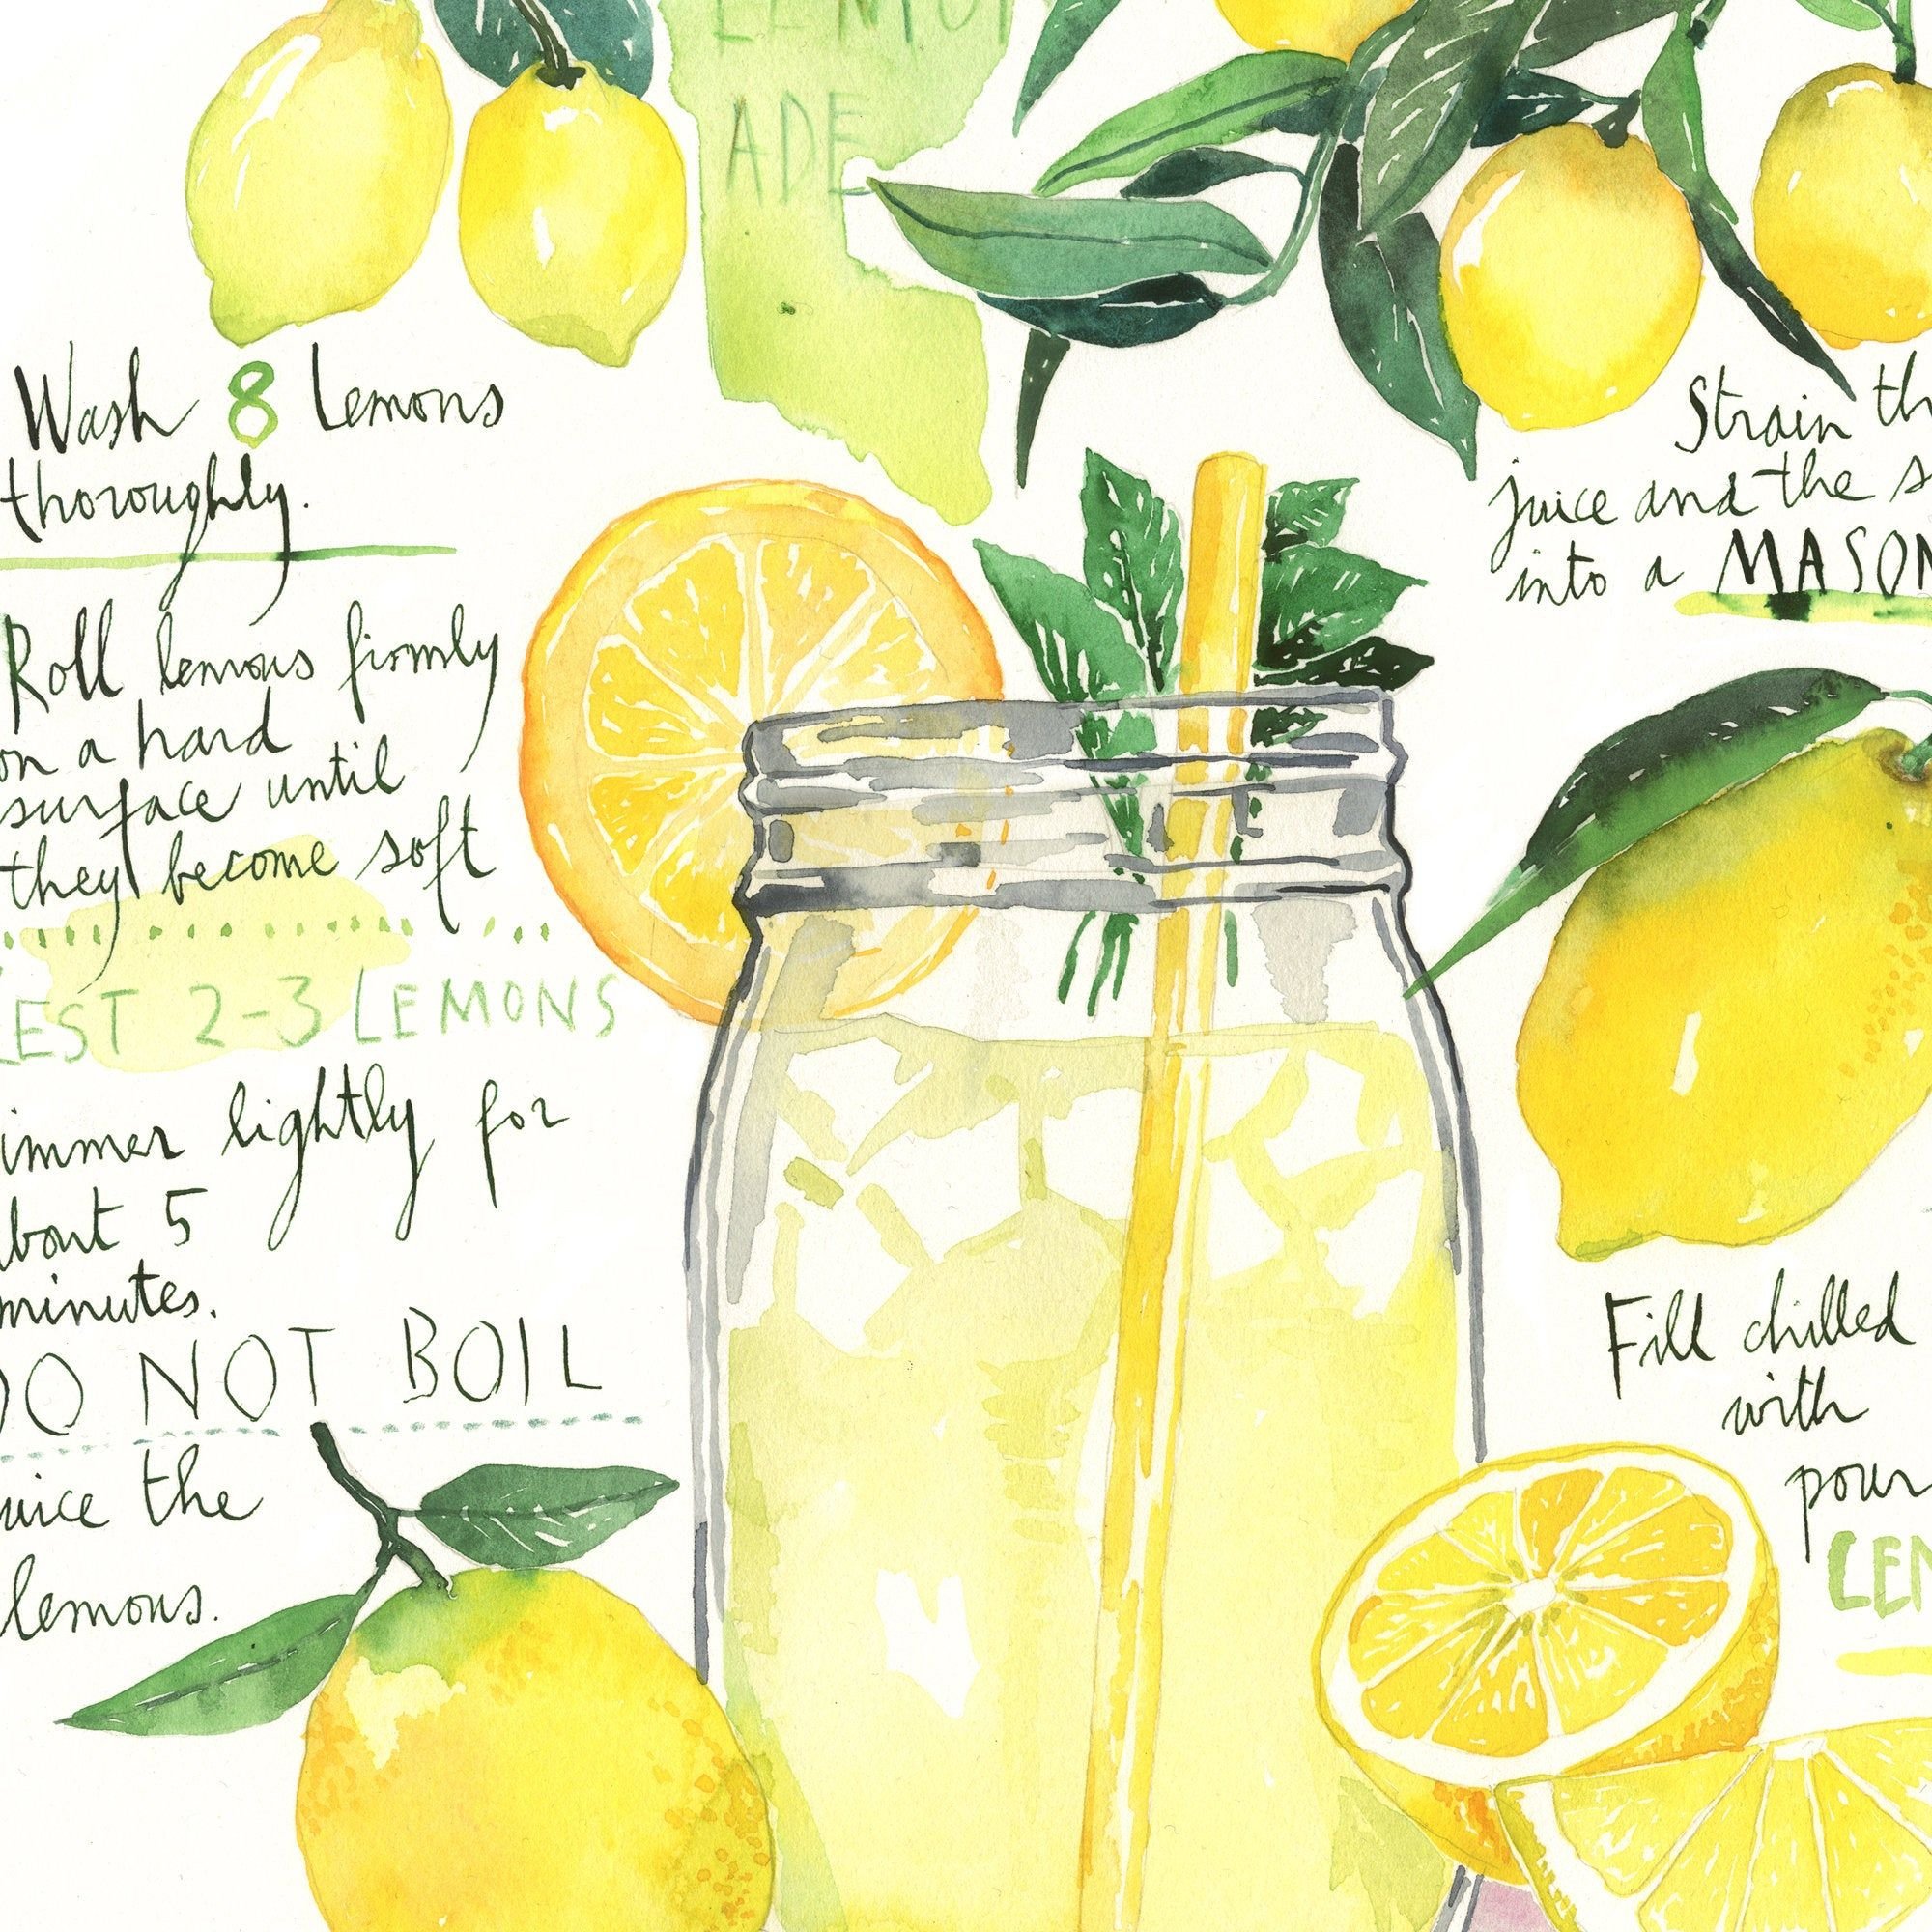 LEMON
ADE
Wash 8 Lemons
thoroughly.
Roll lemons firmly
on a hard
surface until
they become soft
ZEST 2-3 LEMONS
immer lightly for
bout 5
minutes.
DO NOT BOIL
uice the
lemons.
Strain th
juice and the s
into a MASON
Fill chilled
with
pour
LEM